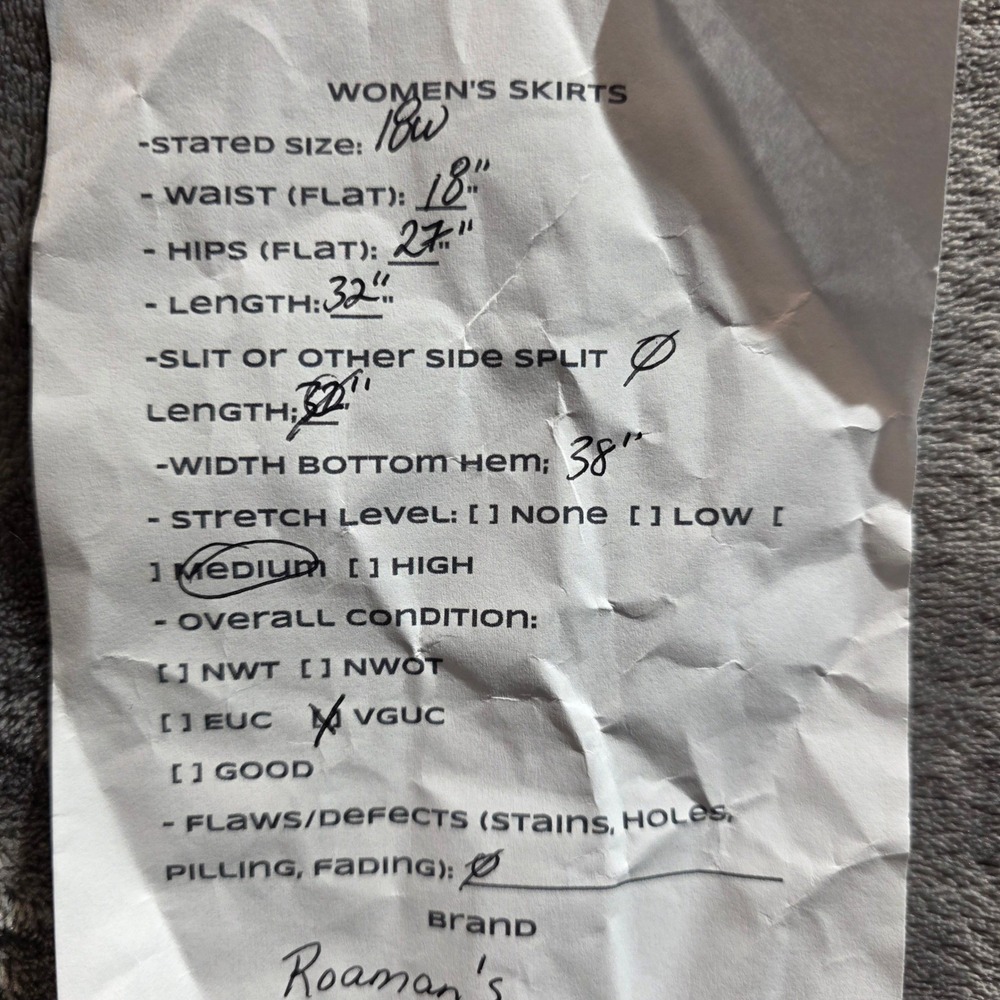 WOMEN'S SKIRTS
-STATED SIZE: 18W
- WAIST (FLAT): 18"
- HIPS (FLAT): 27"
- LENGTH: 32"
-SLIT OR OTHER SIDE SPLIT Ø
LENGTH; "
-WIDTH BOTTOM HEM; 38"
- STRETCH LEVEL: [ ] NONE [ ] LOW [
] MEDIUM [ ] HIGH
- OVERALL CONDITION:
[ ] NWT [ ] NWOT
[ ] EUC [X] VGUC
[ ] GOOD
- FLAWS/DEFECTS (STAINS, HOLES,
PILLING, FADING): Ø
BRAND
Roaman's